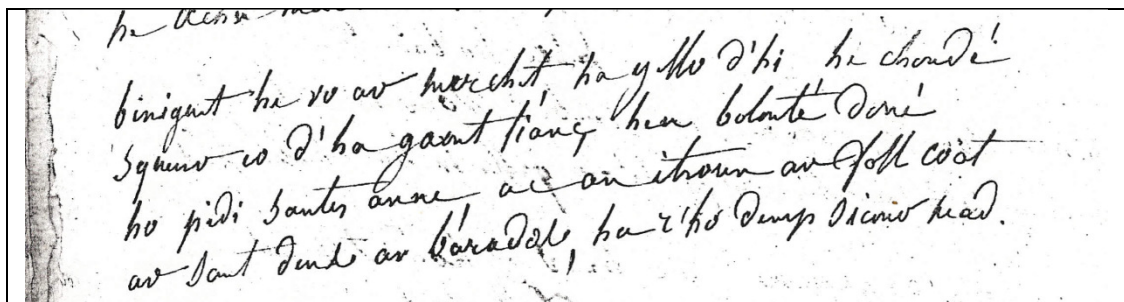 he
binigent he vo ar merchet, ha y llo d'hi he choudé
squeuv eo d'ha gaout fianç hen bolonté doué
ho pidi santes anne, ac an itroun ar foll coat
ar sant deus ar baradoz, ha r'ho demp sicour mad.